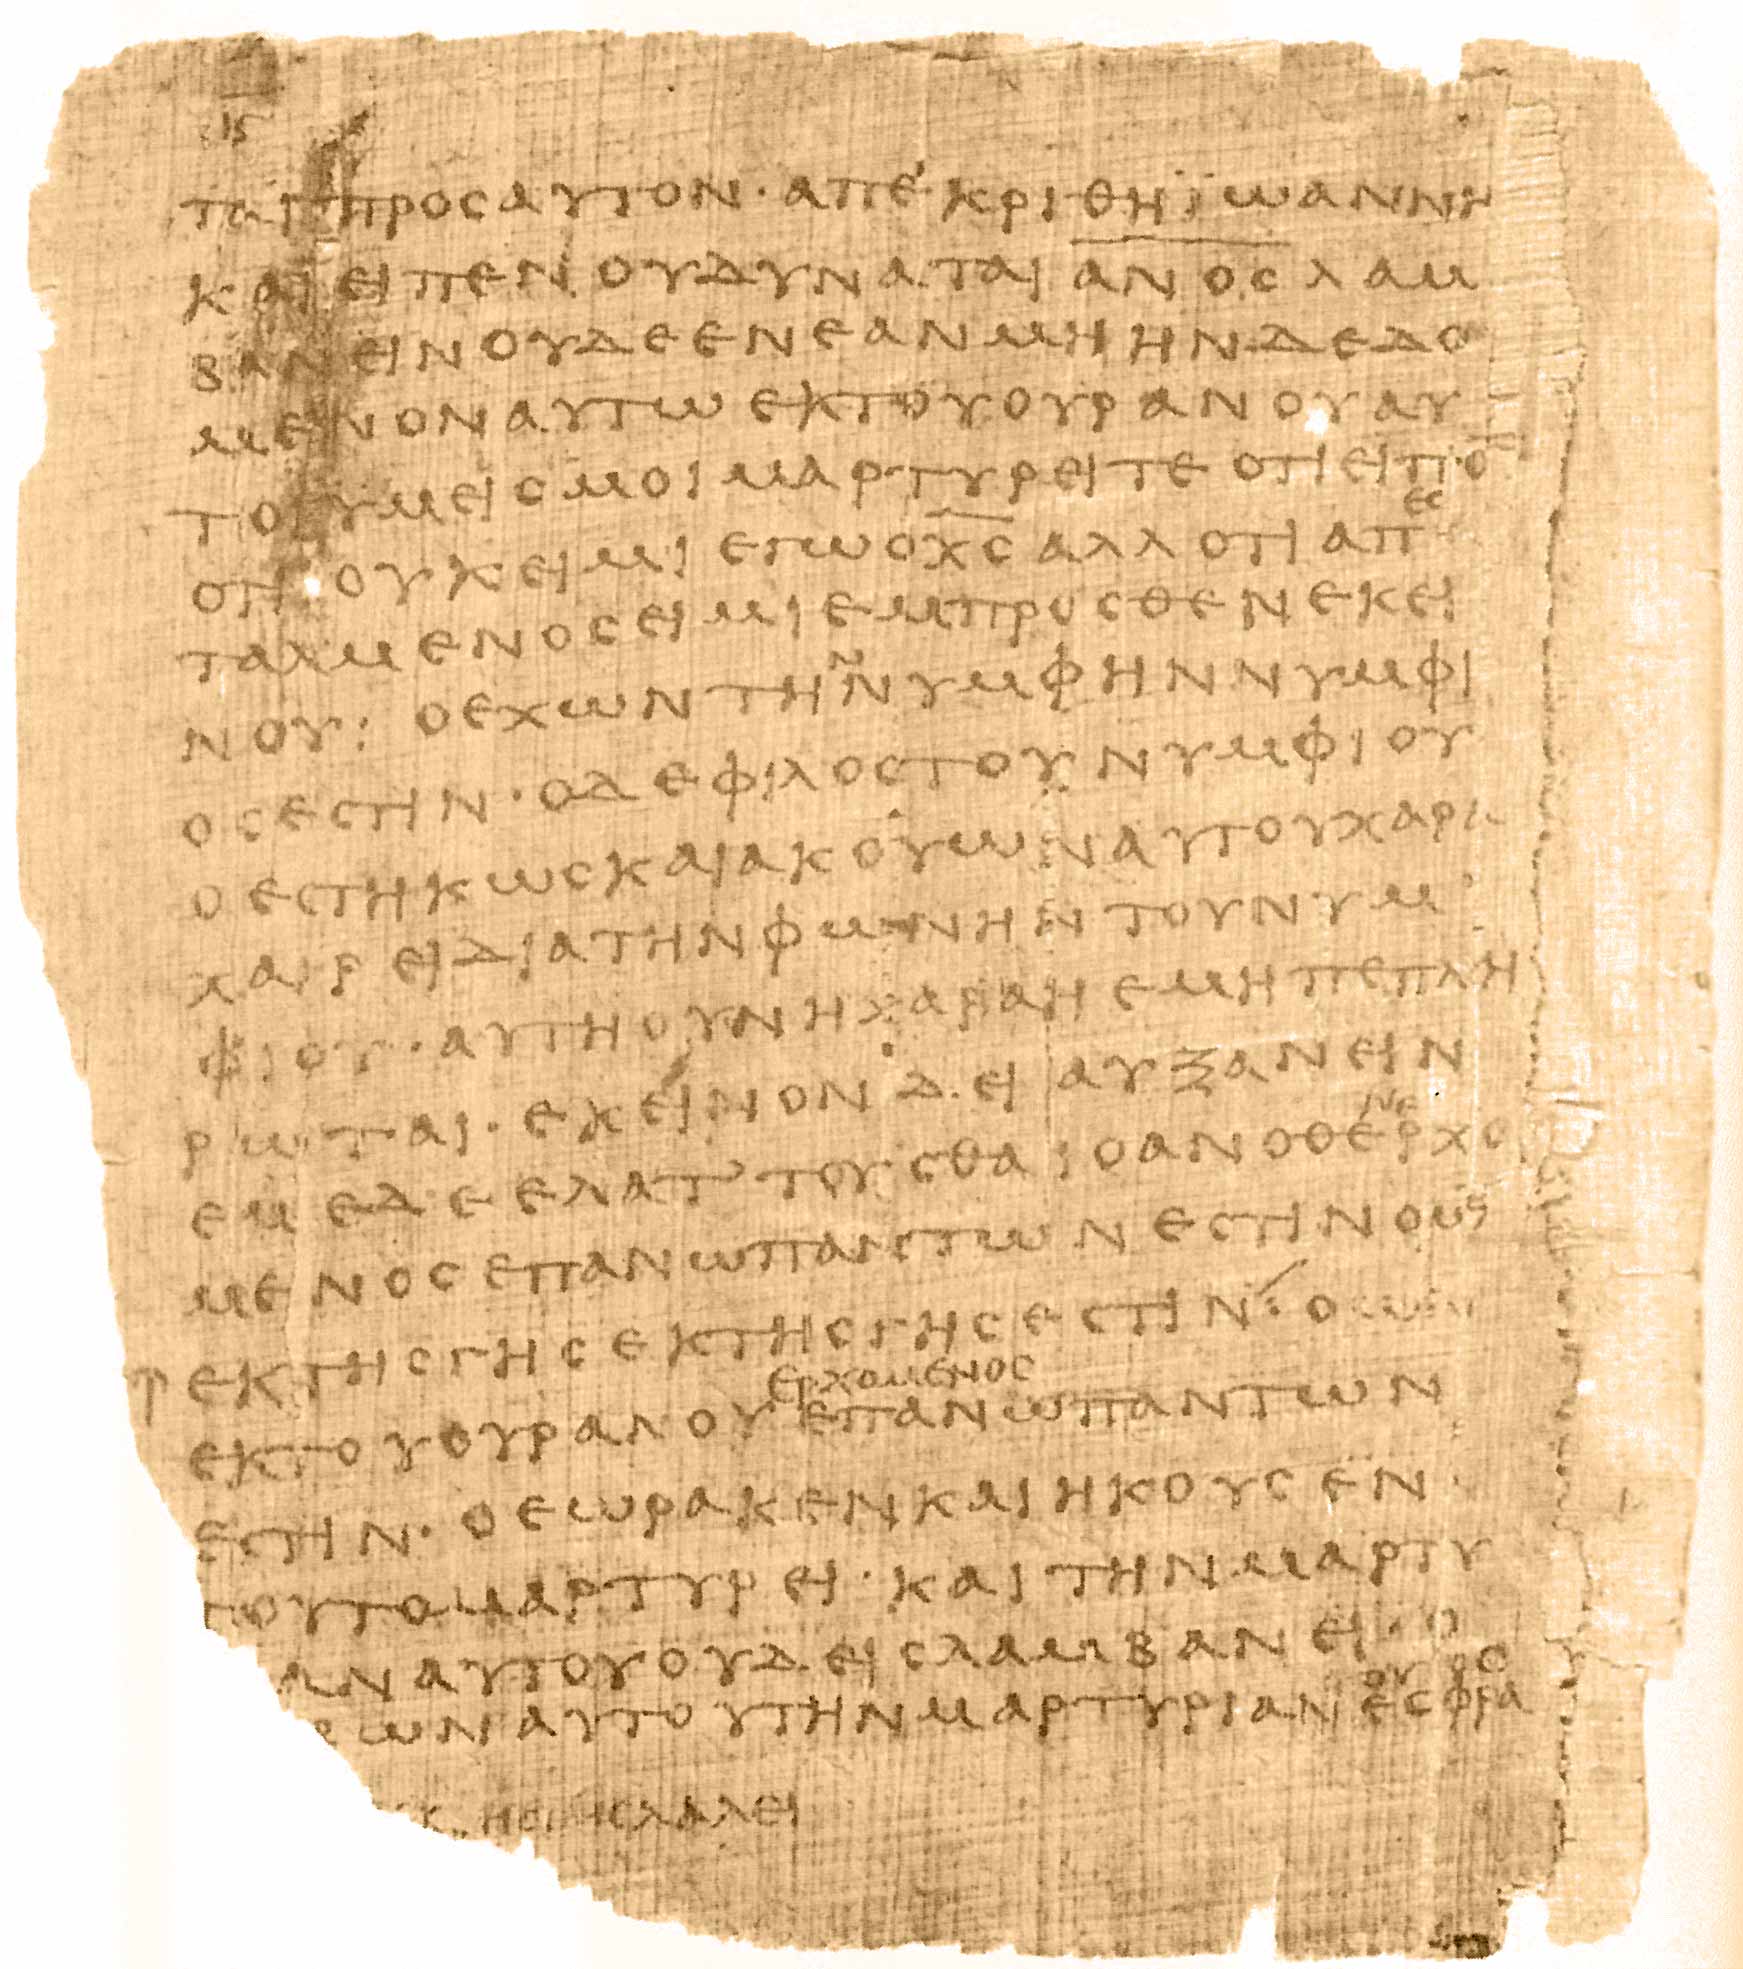 ις
ται προς αυτον· απε᾽κριθη ϊωαννη
και ειπεν ου δυναται α̅ν̅ο̅ς̅ λαμ
βανειν ουδε εν εαν μη ην δεδο
μενον αυτω εκ του ουρανου αυ
τοι υμεις μοι μαρτυρειτε οτι ειπο
οτι ουκ ειμι εγω ο χ̅ς̅ αλλ οτι απ
εσ
ταλμενος ειμι εμπροσθεν εκει
νου: ο εχων την νυμφην νυμφι
ος εστιν· ο δε φιλος του νυμφιου
ο εστηκως και ακουων αυτου χαρα
χαιρει δια την φωνην του νυμ
φιου· αυτη ουν η χαρα η εμη πεπλη
ρωται· εκεινον δει αυξανειν
εμε δε ελαττουσθαι ο ανοθεν ερχο
μενος επανω παντων εστιν ο ως
εκ της γης εκ της γης εστιν· ο
ερχομενος
εκ του ουρανου επανω παντων
εστιν· ο εωρακεν και ηκουσεν
τουτο μαρτυρει· και την μαρτυ
αν αυτου ουδεις λαμβανει· ο
ων αυτου την μαρτυριαν εσφρα
λαλει